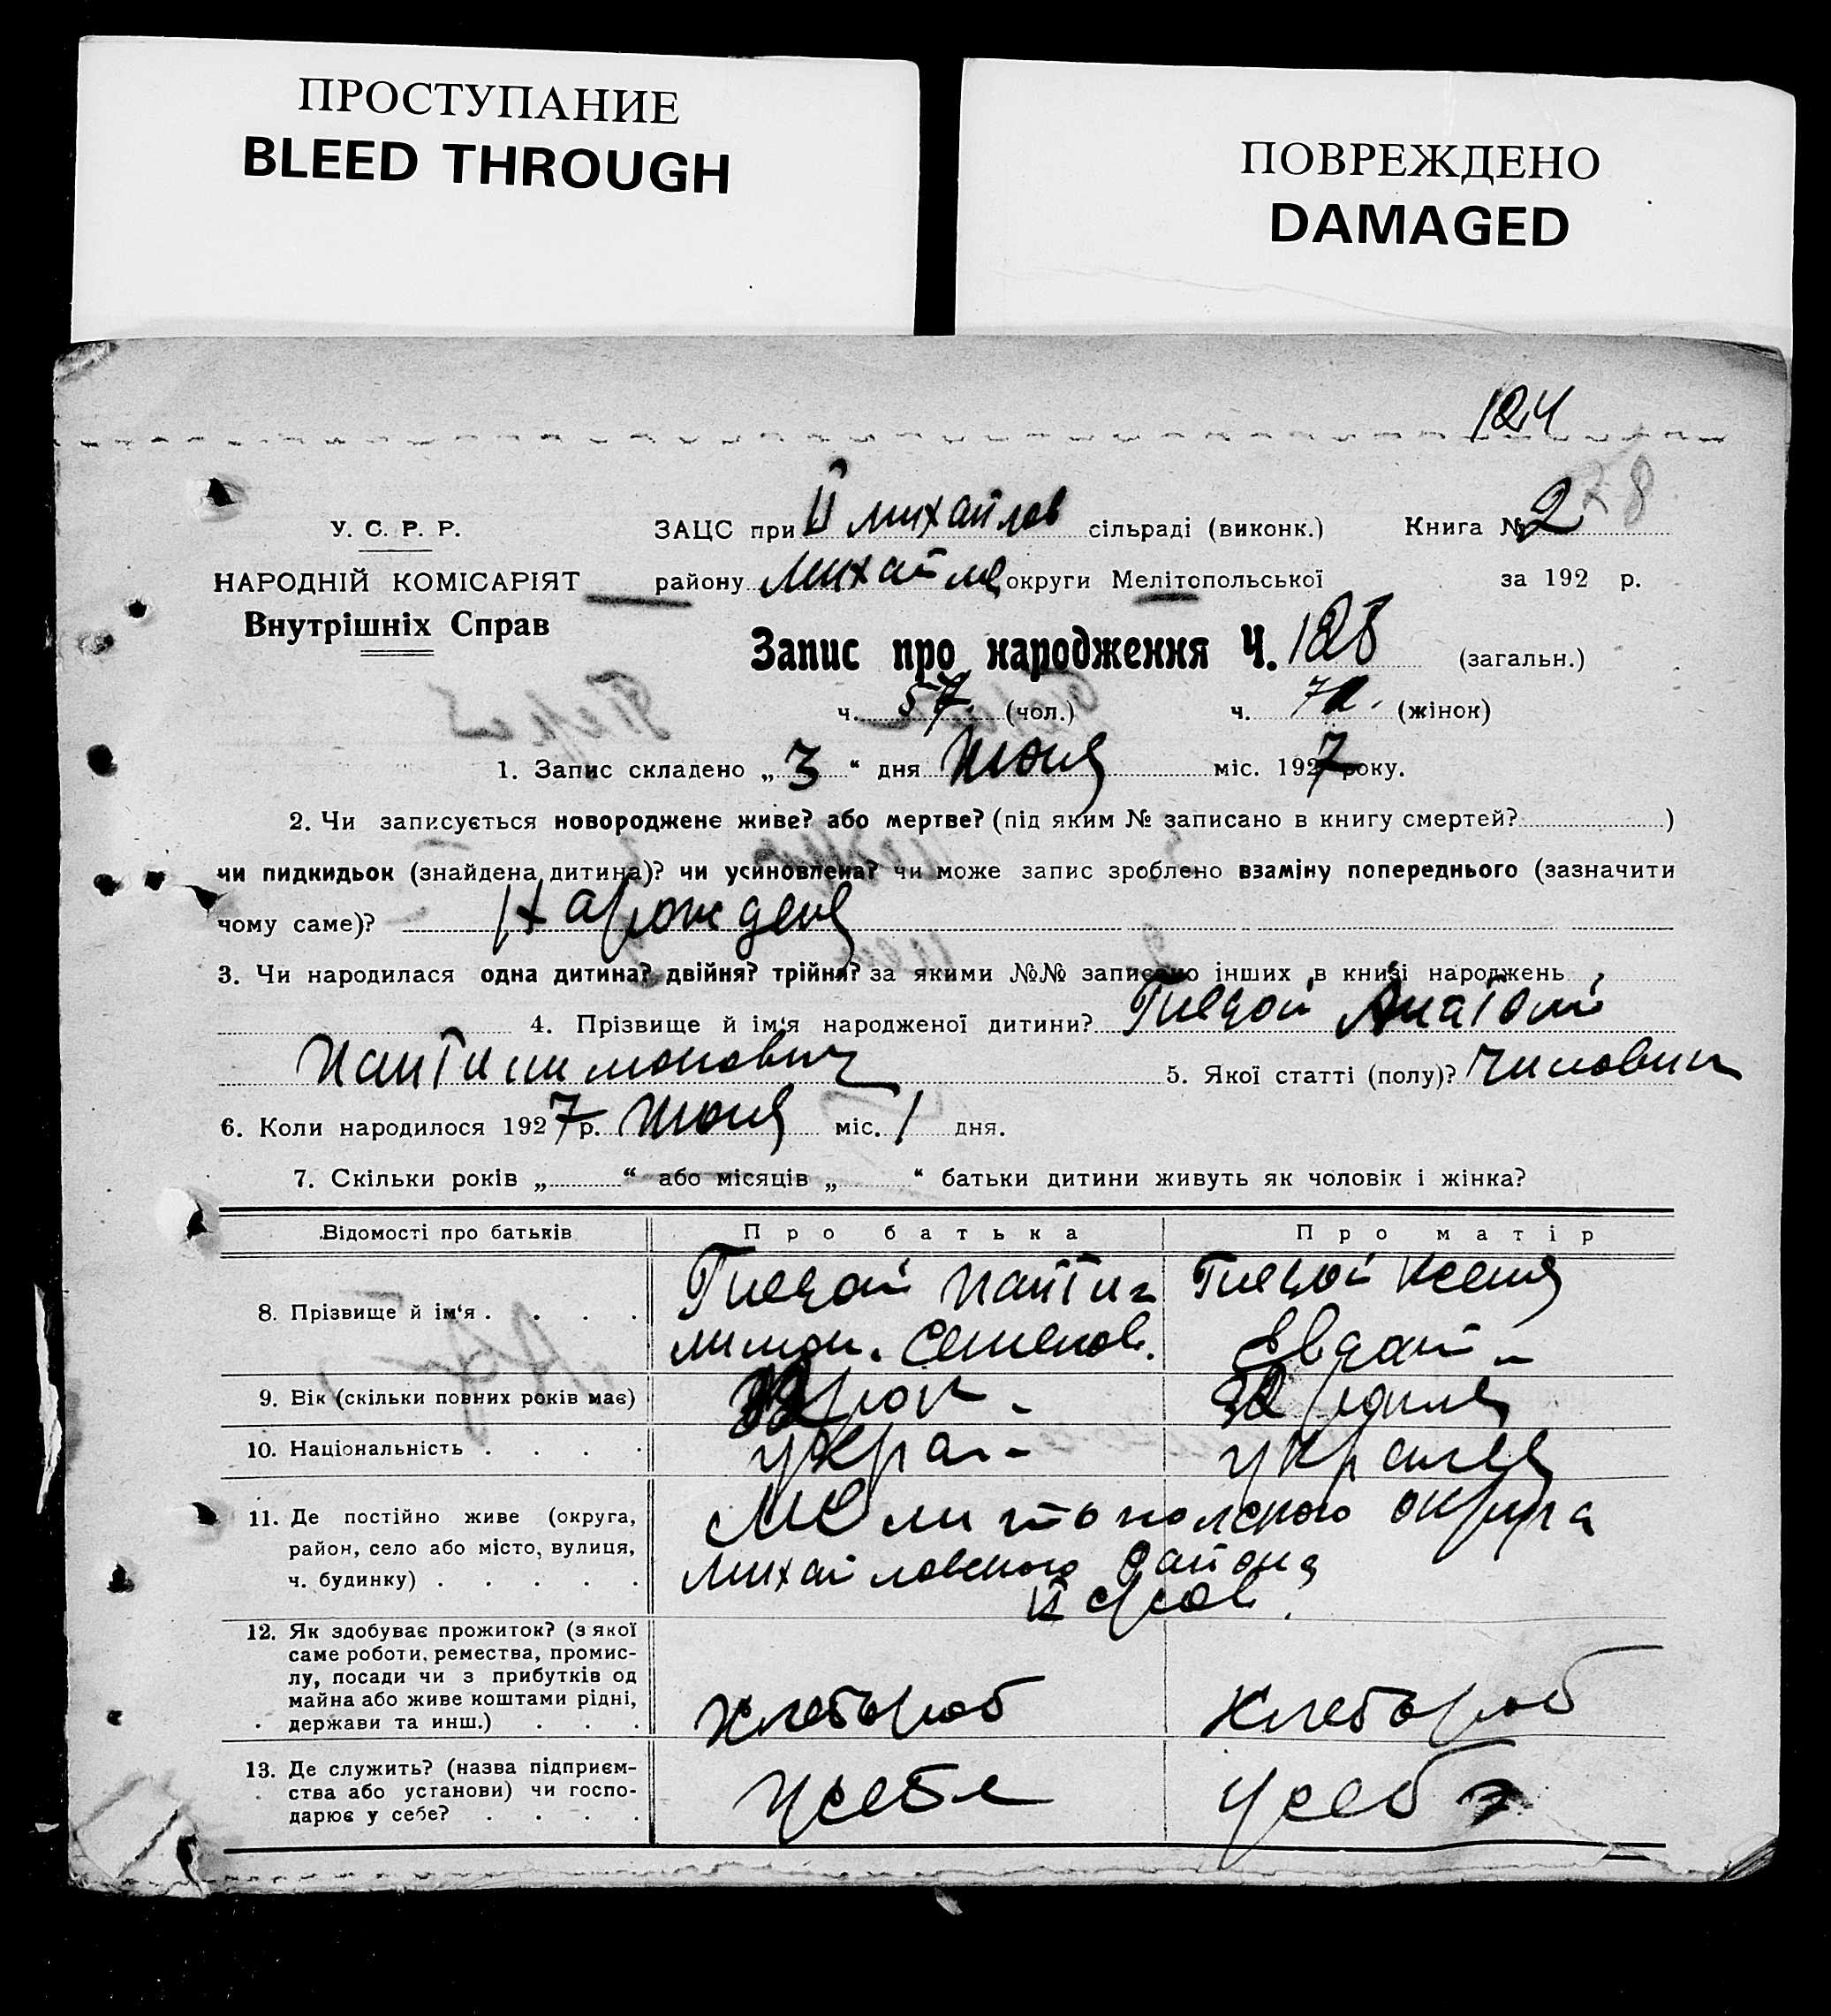 ПРОСТУПАНИЕ
BLEED THROUGH
ПОВРЕЖДЕНО
DAMAGED
124
У. С. Р. Р.
НАРОДНІЙ КОМІСАРІЯТ
Внутрішніх Справ
ЗАЦС при ІІ михайлов сільраді (виконк.) Книга № 2 78
району Михайлов округи Мелітопольської за 192 р.
Запис про народження Ч. 128 (загальн.)
ч. 57. (чол.) ч. 71. (жінок)
1. Запис складено „ 3 “ дня Июня міс. 1927 року.
2. Чи записується новороджене живе? або мертве? (під яким № записано в книгу смертей? )
чи пидкидьок (знайдена дитина)? чи усиновлена? чи може запис зроблено взаміну попереднього (зазначити
чому саме)? Нарожденя
3. Чи народилася одна дитина? двійня? трійня? за якими №№ записано інших в книзі народжень
4. Прізвище й ім‘я народженої дитини? Гнедой Анатолий
Пантилимонович 5. Якої статті (полу)? Чиловик
6. Коли народилося 1927 р. Июня міс. 1 дня.
7. Скільки років „ “ або місяців „ “ батьки дитини живуть як чоловік і жінка?
Відомості про батьків Про батька Про матір
8. Прізвище й ім‘я . . . . Гнедой Панти-
лимон. Семенов. Гнедой Ксения
Евдок -
9. Вік (скільки повних років має) 32 рок - 32 
10. Національність . . . . укра - украинка
11. Де постійно живе (округа,
район, село або місто, вулиця,
ч. будинку) . . . . . Мелитополского округа
Михайловского района
12. Як здобуває прожиток? (з якої
саме роботи, ремества, промис-
лу, посади чи з прибутків од
майна або живе коштами рідні,
держави та инш.) . . . хлебороб хлебороб
13. Де служить? (назва підприєм-
ства або установи) чи госпо-
дарює у себе? . . . . у себе у себе